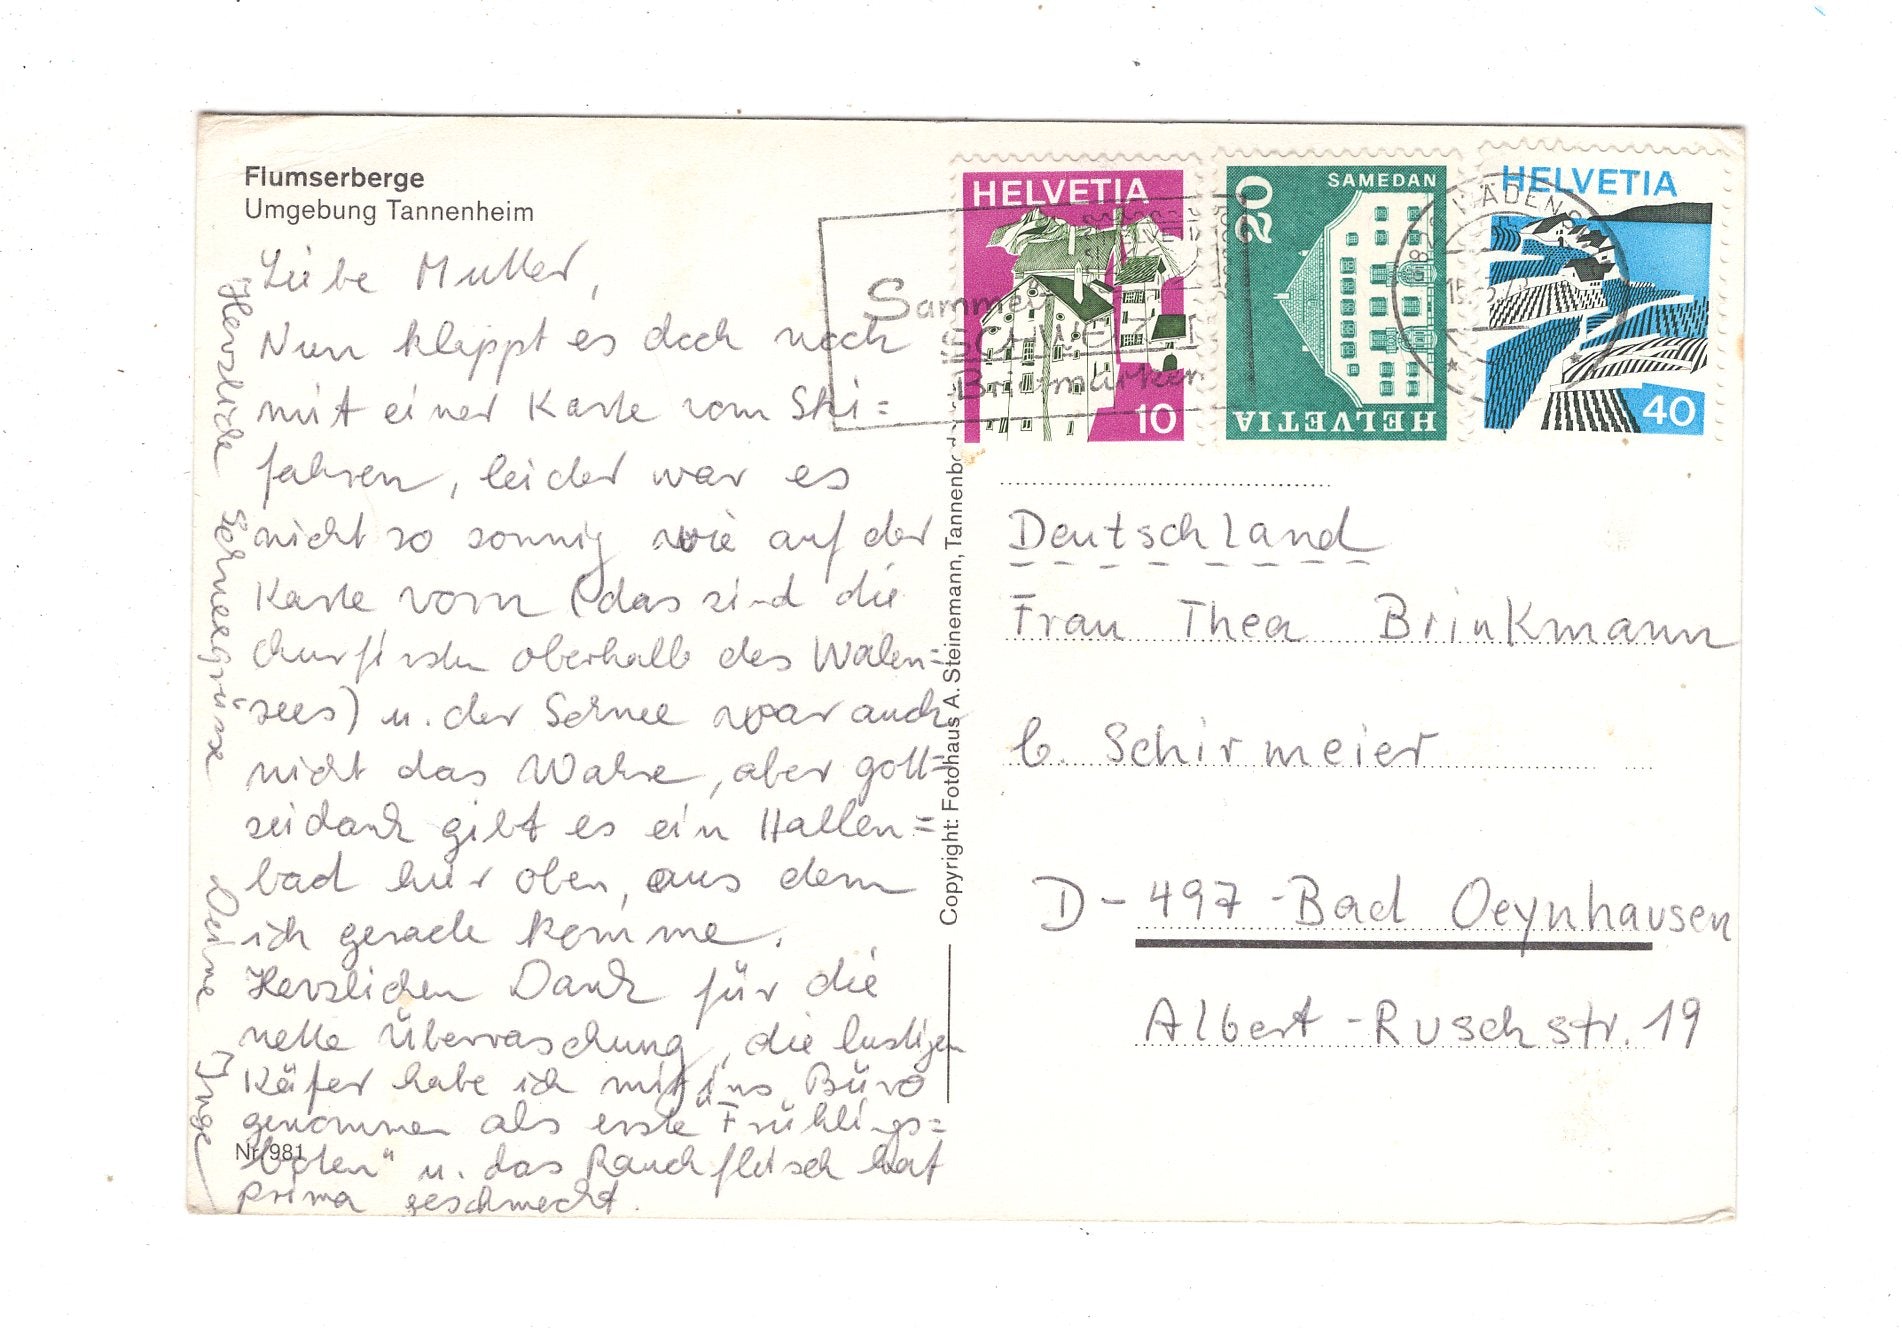 Flumserberge
Umgebung Tannenheim
Liebe Mutter,
Nun klappt es doch noch
mit einer Karte vom Ski=
fahren, leider war es
nicht so sonnig wie auf der
Karte vorn (das sind die
Churfirsten oberhalb des Walen=
sees) u. der Schnee war auch
nicht das Wahre, aber gott=
seidank gibt es ein Hallen=
bad hier oben, aus dem
ich gerade komme.
Herzlichen Dank für die
nette Überraschung, die lustigen
Käfer habe ich mit ins Büro
genommen als erste "Frühlings=
boten" u. das Rauchfleisch hat
prima geschmeckt.
Herzliche Schneegrüsse
Deine Inge
Nr. 981
Copyright: Fotohaus A. Steinemann,
HELVETIA
10
20
SAMEDAN
HELVETIA
HELVETIA
40
Sammelt
SCHWEIZER
Briefmarken
WÄDENS
Deutschland
Frau Thea Brinkmann
b. Schirmeier
D-497-Bad Oeynhausen
Albert-Ruschstr. 19